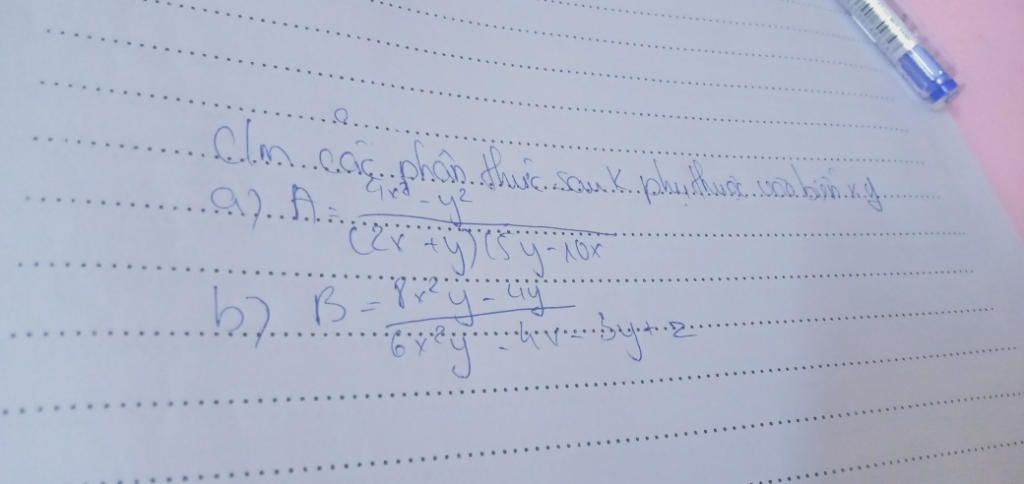 C/m các phân thức sau k phụ thuộc vào biến x, y
a) A = \frac{4x² - y²}{(2x + y)(5y - 10x}
b) B = \frac{8x²y - 4y}{6x²y - 4x - 3y + 2}